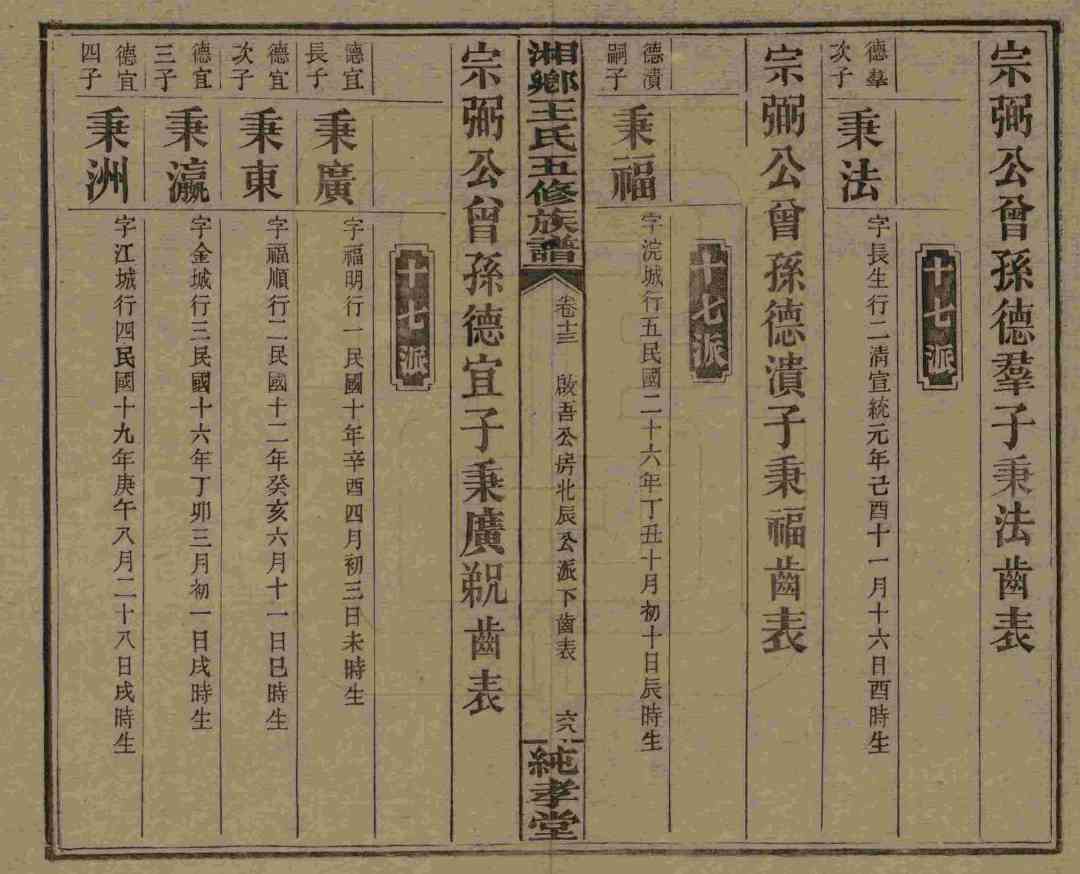 宗弼公曾孫德羣子秉法齒表
十七派
德羣次子
秉法
字長生行二清宣統元年己酉十一月十六日酉時生
宗弼公曾孫德漬子秉福齒表
十七派
德漬嗣子
秉福
字浣城行五民國二十六年丁丑十月初十日辰時生
湘鄉王氏五修族譜
卷十三
啟吾公房北辰公派下齒表
六八
純孝堂
宗弼公曾孫德宜子秉廣覜齒表
十七派
德宜長子
秉廣
字福明行一民國十年辛酉四月初三日未時生
德宜次子
秉東
字福順行二民國十二年癸亥六月十一日巳時生
德宜三子
秉瀛
字金城行三民國十六年丁卯三月初一日戌時生
德宜四子
秉洲
字江城行四民國十九年庚午八月二十八日戌時生